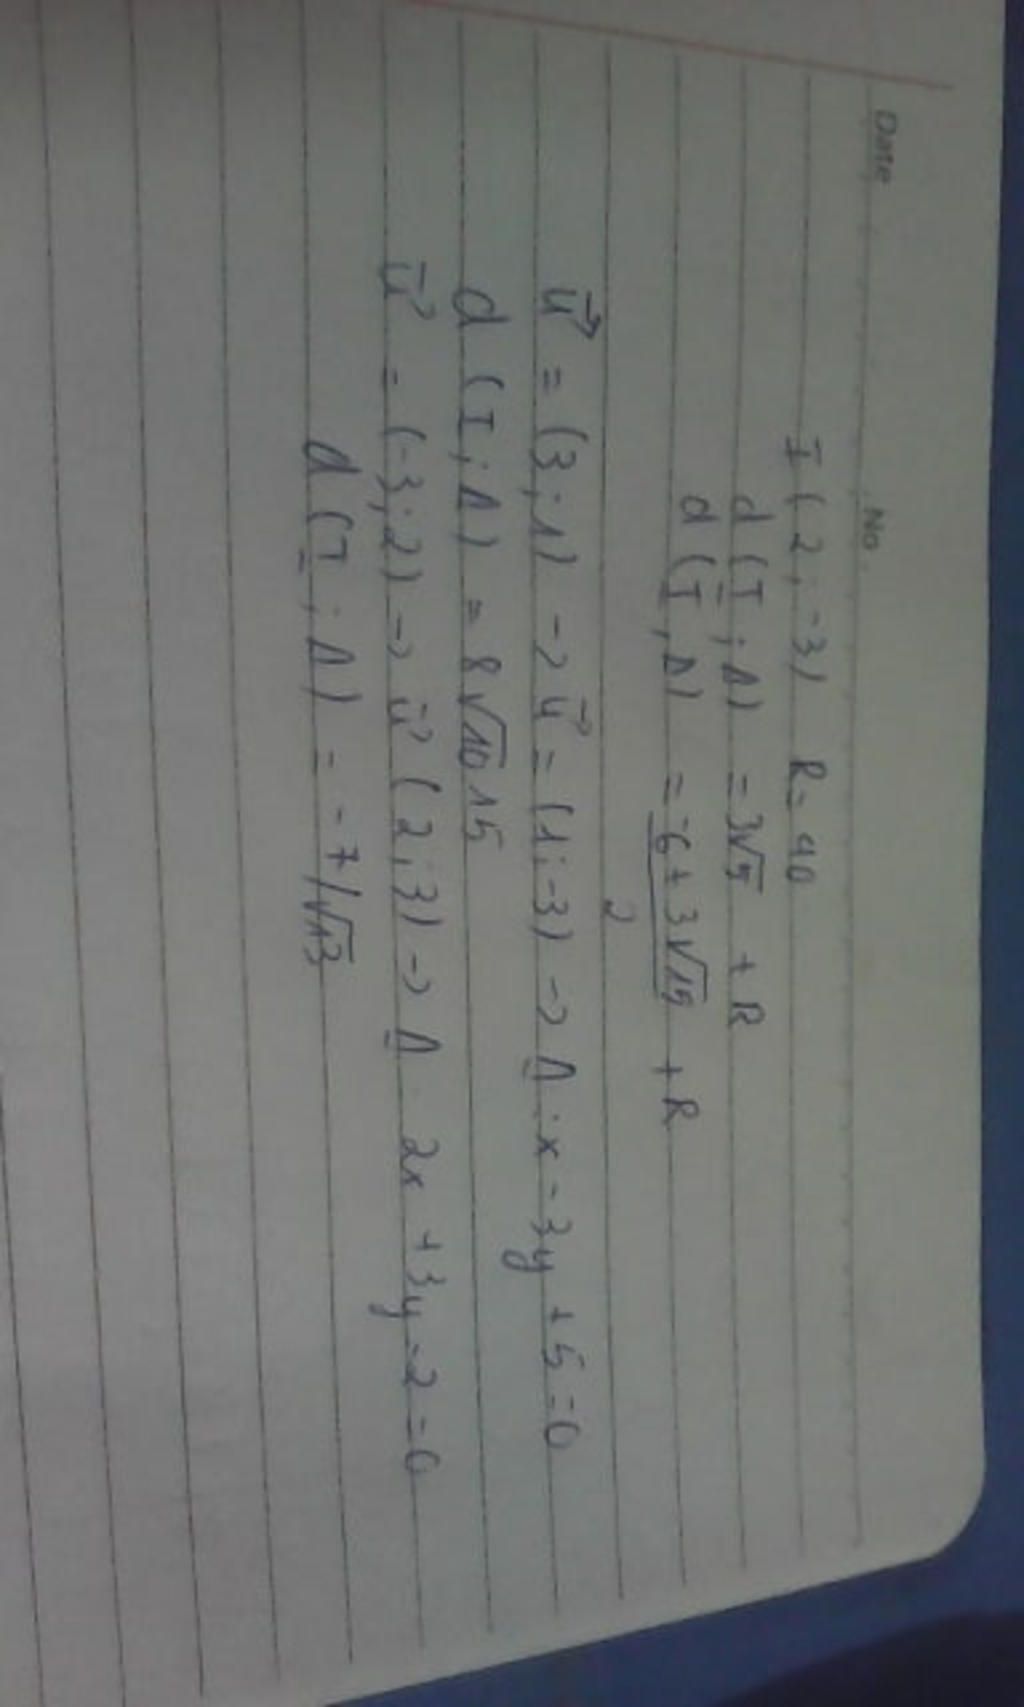 Date No.
I (2 ; -3) R = 40
d (I ; Δ) = 3√5 + R
d (I, Δ) = -6 + 3√15 + R
2
u⃗ = (3 ; 1) -> u⃗ = (1 ; -3) -> Δ : x - 3y + 5 = 0
d (I ; Δ) = 8√10 15
u⃗ = (-3 ; 2) -> u⃗ (2 ; 3) -> Δ 2x + 3y - 2 = 0
d (I ; Δ) = -7/√13